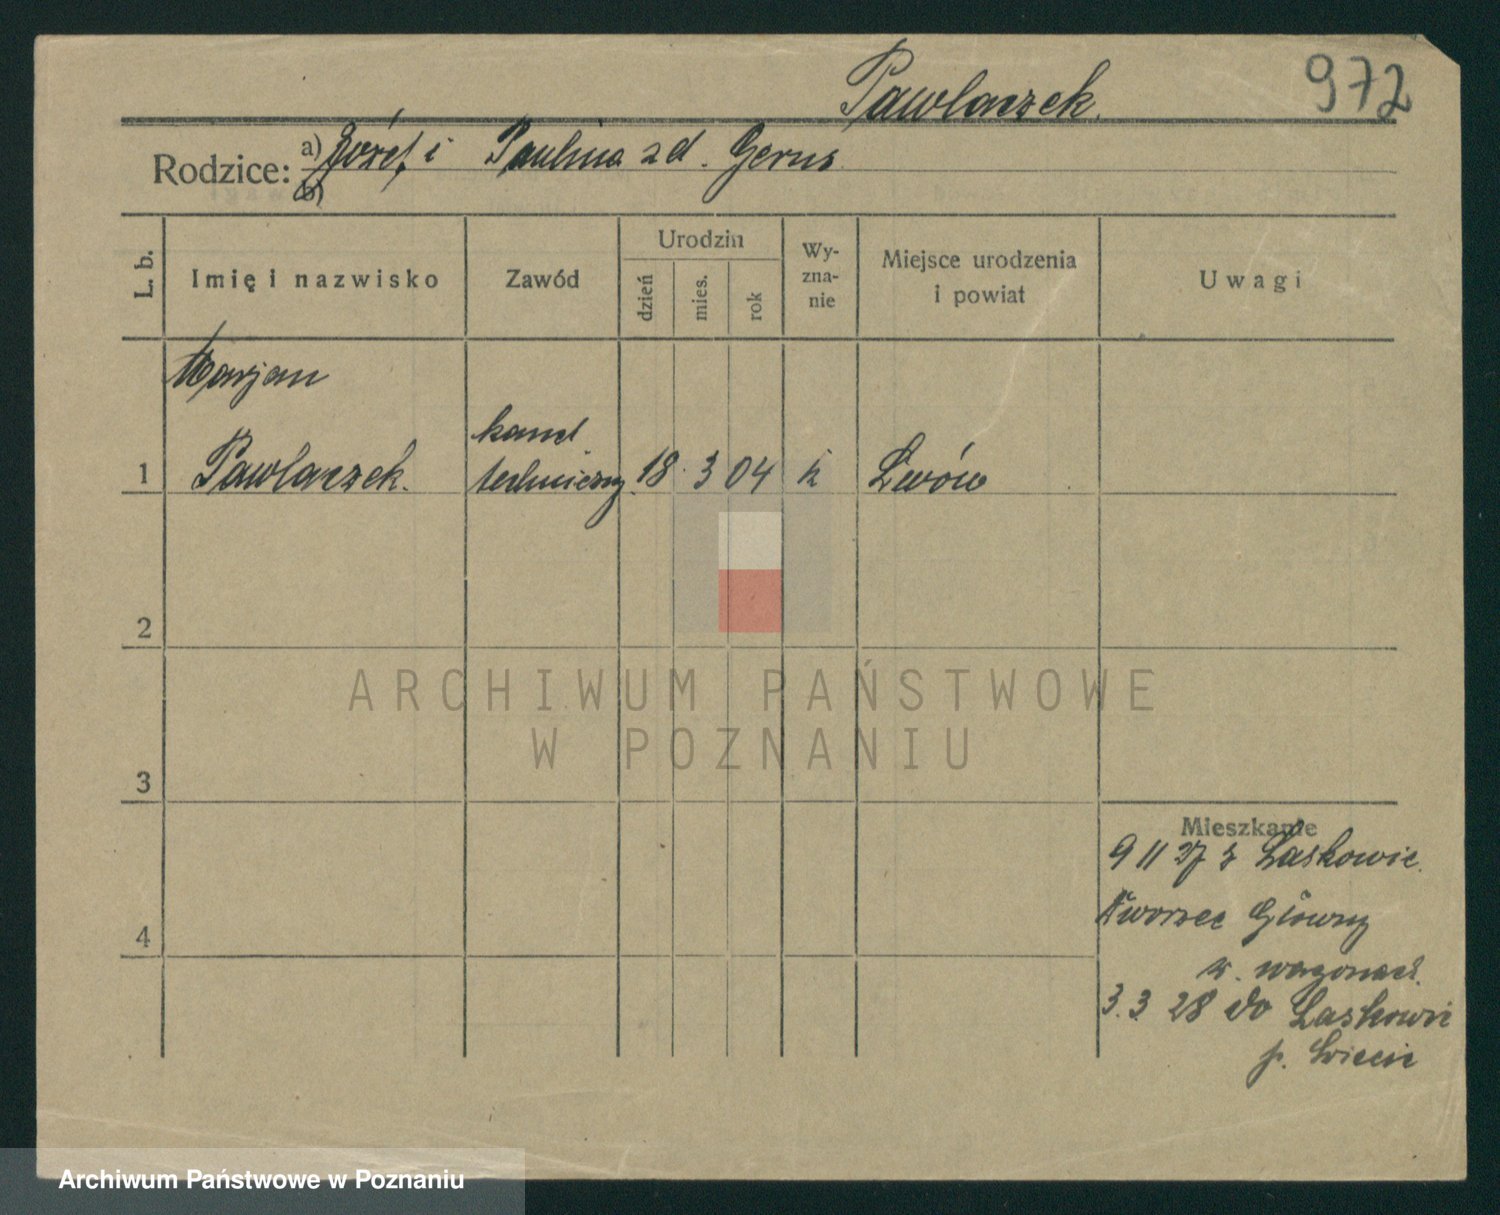 Pawlaczek.
972
Rodzice: a) Józef i Paulina zd. Gerus
b)
L. b.
Imię i nazwisko
Zawód
Urodzin
dzień
mies.
rok
Wy-
zna-
nie
Miejsce urodzenia
i powiat
Uwagi
Marjan
kand
1 Pawlaczek. techniczny 18. 3 04 k Lwów
2
3
4
Mieszkanie
9 11 27 z Laskowic.
Dworzec Główny
w. wagonach.
3. 3 28 do Laskowic
p. Świecie
ARCHIWUM PAŃSTWOWE
W POZNANIU
Archiwum Państwowe w Poznaniu